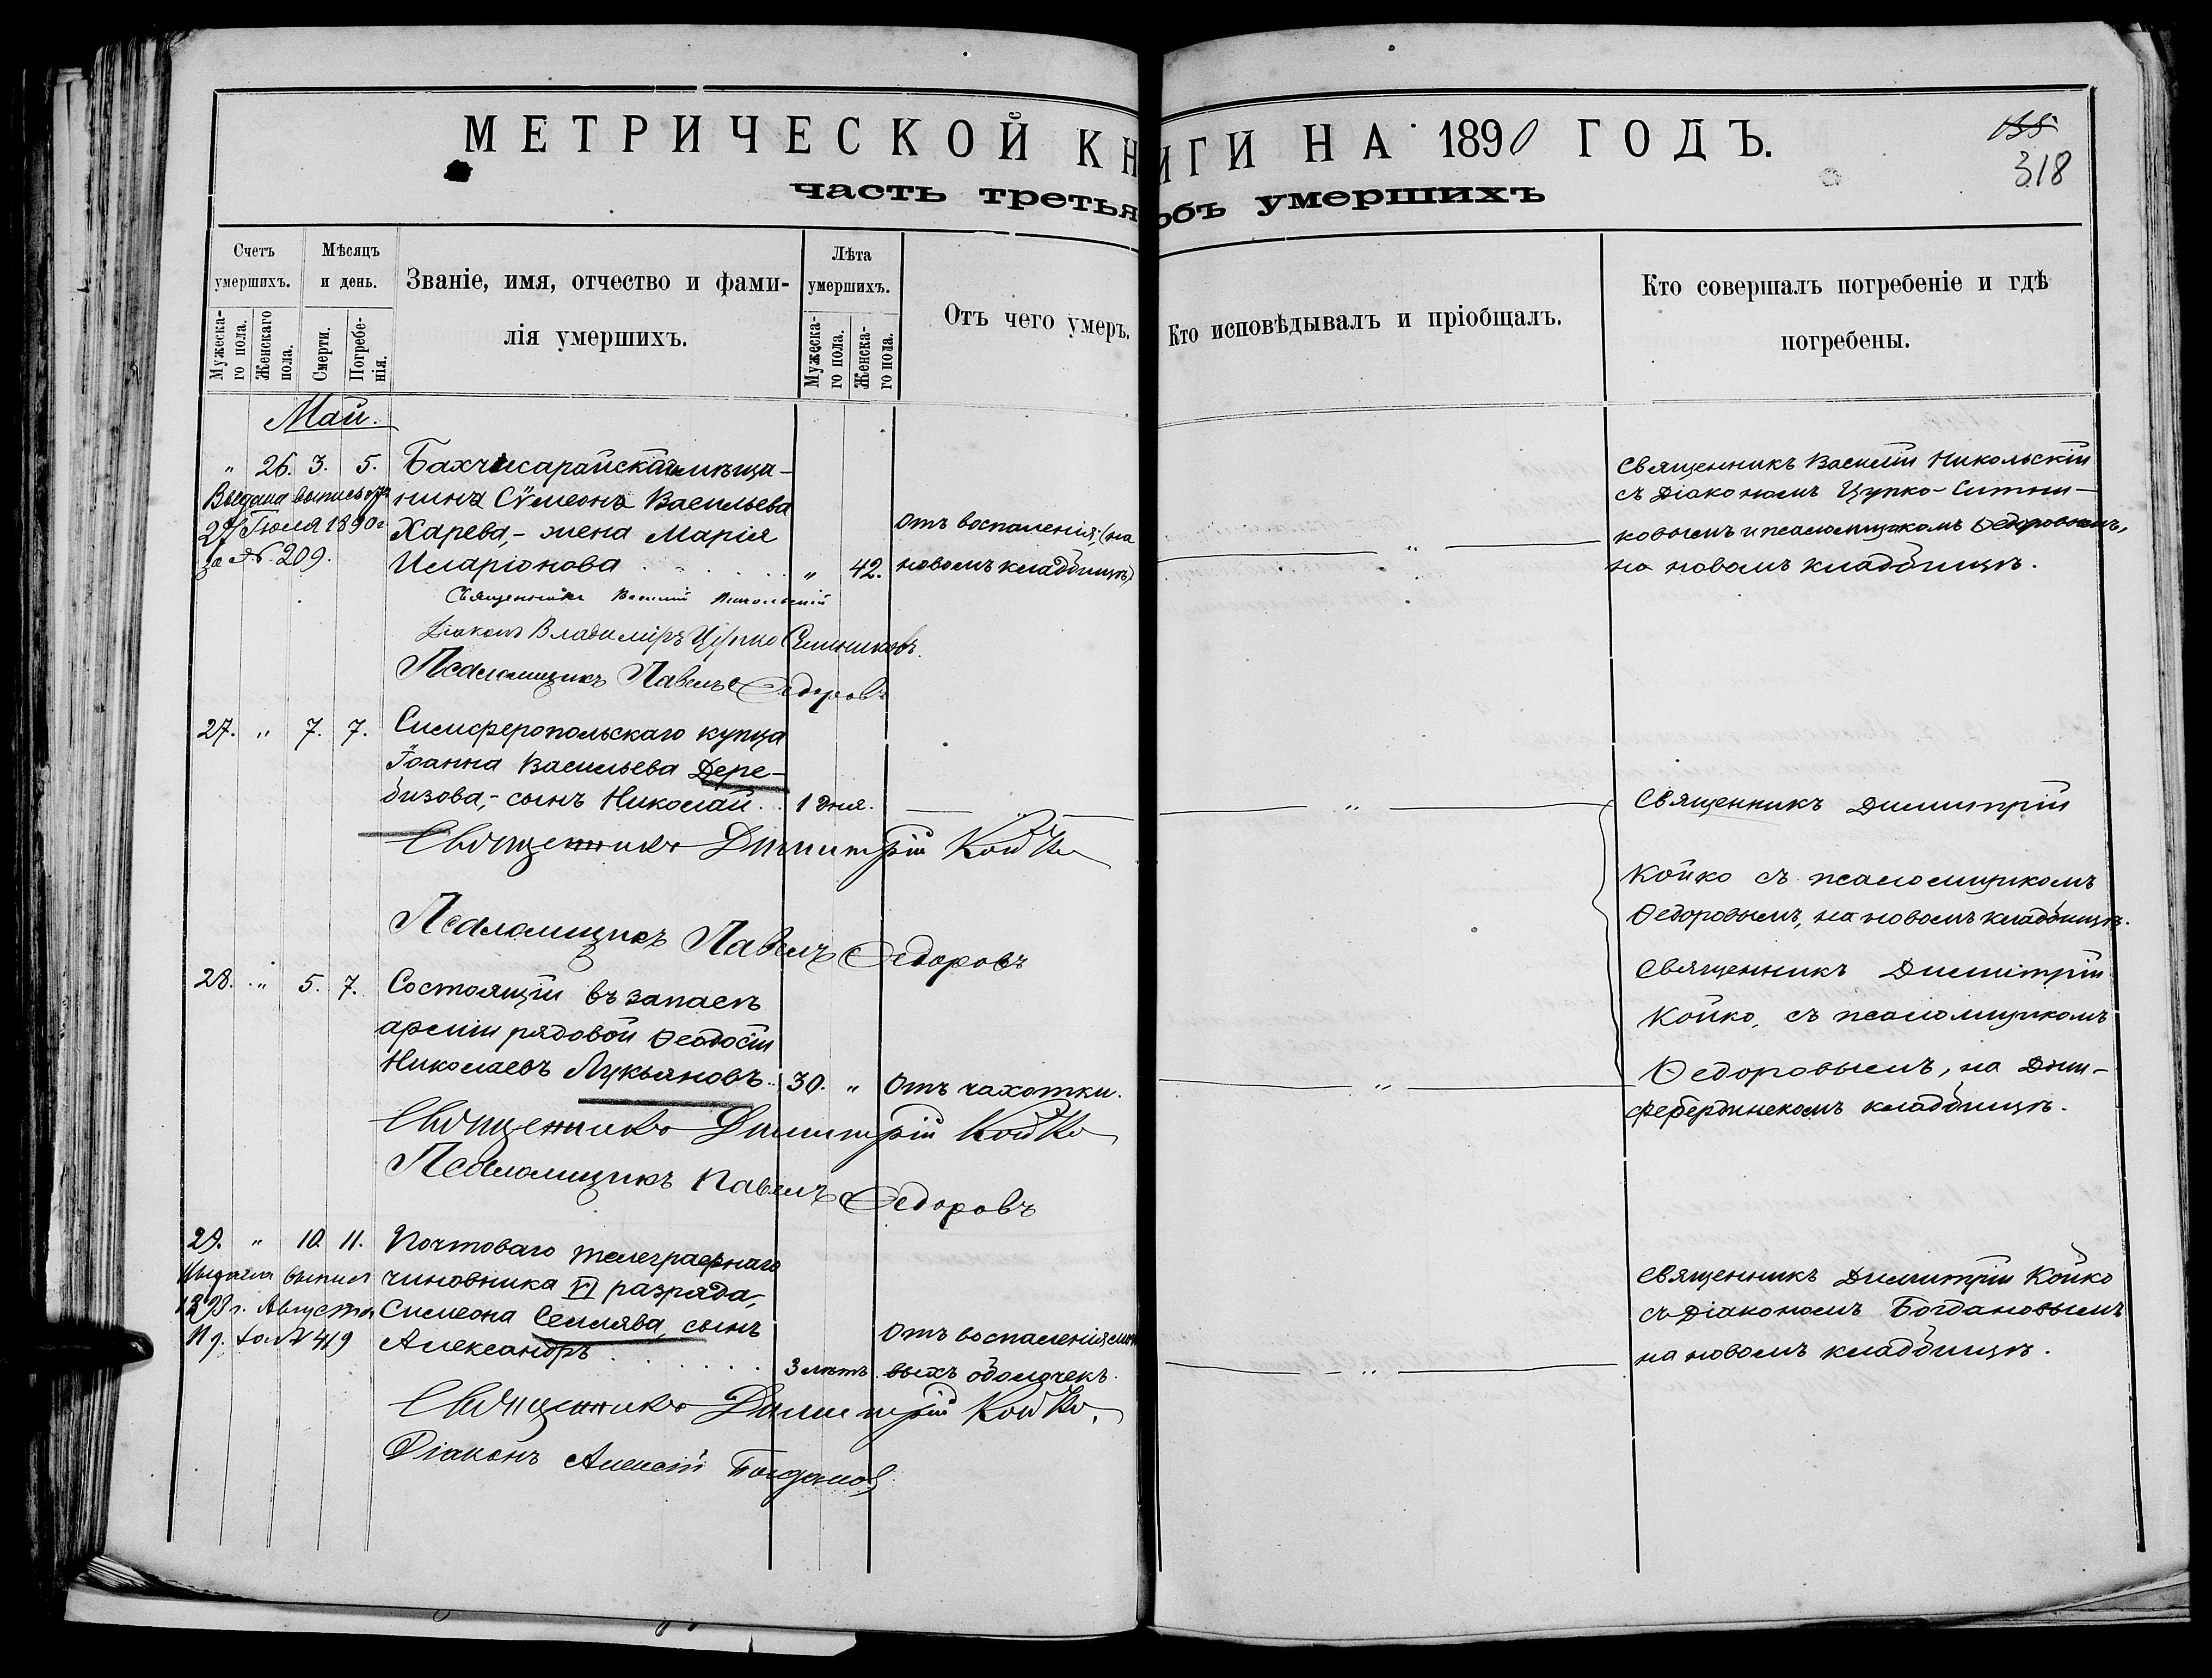 МЕТРИЧЕСКОЙ КНИГИ НА 1890 ГОДЪ.
часть третья объ умершихъ
155
318
Счетъ умершихъ.
Мужеска-го пола.
Женскаго пола.
Мѣсяцъ и день.
Смерти.
Погребе-нія.
Званіе, имя, отчество и фами-
лія умершихъ.
Лѣта умершихъ.
Мужеска-го пола.
Женска-го пола.
Отъ чего умеръ.
Кто исповѣдывалъ и пріобщалъ.
Кто совершалъ погребеніе и гдѣ
погребены.
Май.
" 26. 3. 5. Бахчисарайскаго мѣща-
нина Сѵмеона Васильева
Харева,- жена Марія
Иларіонова " 42.
Выдана выпись
27 Іюля 1890 г
за № 209.
Отъ воспаленія, (на
новомъ кладбищѣ)
"
Священникъ Василій Никольскій
съ діакономъ Цупко-Ситни-
ковымъ и псаломщикомъ Ѳедоровымъ,
на новомъ кладбищѣ.
Священникъ Василій Никольскій
Діаконъ Владимiръ Цупко Ситниковъ.
Псаломщикъ Павелъ Ѳедоровъ
27. " 7. 7. Симферопольскаго купца
Іоанна Васильева Дере-
бизова,- сынъ Николай. 1 дня. " "
Священникъ Димитрій
Койко съ псаломщикомъ
Ѳедоровымъ, на новомъ кладбищѣ.
Священникъ Димитрій Койко
Псаломщикъ Павелъ Ѳедоровъ
28. " 5. 7. Состоящій въ запасѣ
арміи рядовой Ѳеодосій
Николаевъ Лукьяновъ. 30. " Отъ чахотки. "
Священникъ Димитрій
Койко, съ псаломщикомъ
Ѳедоровымъ, на
кладбищѣ.
Священникъ Димитрій Койко
Псаломщикъ Павелъ Ѳедоровъ
29. " 10. 11. Почтоваго телеграфнаго
чиновника VI разряда,
Симеона Семлява, сынъ
Александръ 3 лѣтъ
Выдана выпись
1898 г. Августа
№ 419
Отъ воспаленія
выхъ оболочекъ.
"
Священникъ Димитрій Койко
съ діакономъ Богдановымъ
на новомъ кладбищѣ.
Священникъ Димитрій Койко.
Діаконъ Алексій Богдановъ